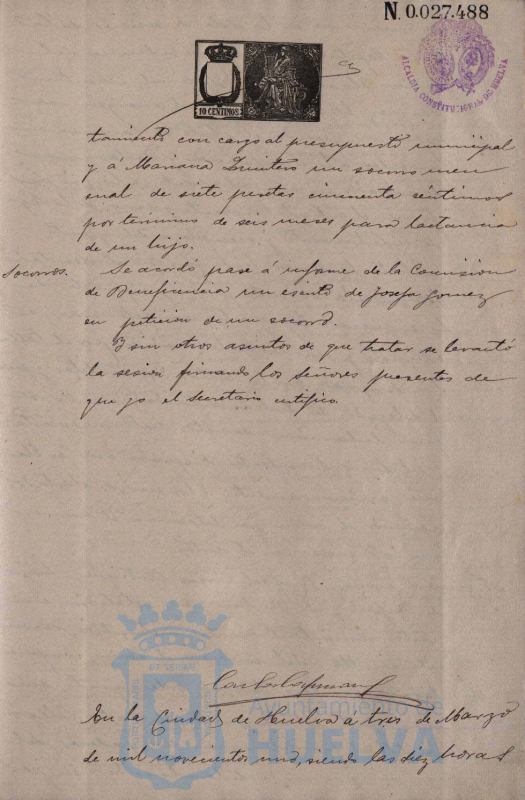 N. 0.027.488
ALCALDIA CONSTITUCIONAL DE HUELVA
10 CENTIMOS
tamiento con cargo al presupuesto municipal
y á Mariana Quintero un socorro men
sual de siete pesetas cincuenta céntimos
por termino de seis meses para lactancia
de un hijo.
Socorros.
Se acordó pase á informe de la Comision
de Beneficencia un escrito de Josefa Gomez
en peticion de un socorro.
Y sin otros asuntos de que tratar se levantó
la sesion firmando los Señores presentes de
que yo el Secretario certifico.
Ayuntamiento de
HUELVA
En la Ciudad de Huelva a tres de Marzo
de mil novecientos uno, siendo las diez horas